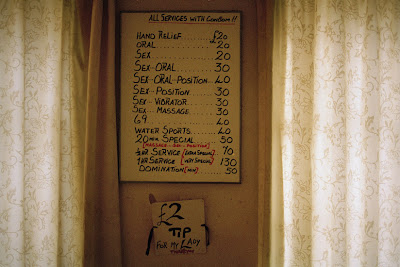 ALL SERVICES WITH Condom !!
HAND RELIEF £20
ORAL 20
SEX 20
SEX-ORAL 30
SEX-ORAL-POSITION 40
SEX-POSITION 30
SEX-VIBRATOR 30
SEX-MASSAGE 30
69 40
WATER SPORTS 40
20 MIN SPECIAL 50
(MASSAGE-SEX-POSITION)
SERVICE (EXTRA SPECIAL) 70
1HR SERVICE (VERY SPECIAL) 130
DOMINATION 50
£2
TIP
FOR MY LADY